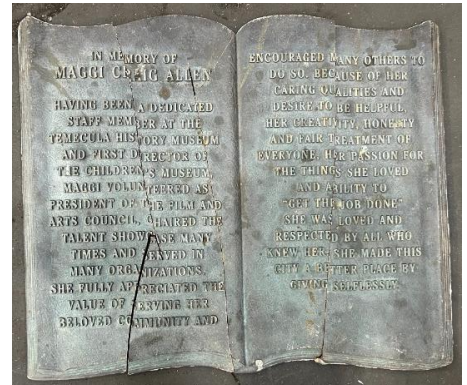 IN MEMORY OF
MAGGI CRAIG ALLEN
HAVING BEEN A DEDICATED
STAFF MEMBER AT THE
TEMECULA HISTORY MUSEUM
AND FIRST DIRECTOR OF
THE CHILDREN'S MUSEUM,
MAGGI VOLUNTEERED AS
PRESIDENT OF THE FILM AND
ARTS COUNCIL, CHAIRED THE
TALENT SHOWCASE MANY
TIMES AND SERVED IN
MANY ORGANIZATIONS.
SHE FULLY APPRECIATED THE
VALUE OF SERVING HER
BELOVED COMMUNITY AND
ENCOURAGED MANY OTHERS TO
DO SO. BECAUSE OF HER
CARING QUALITIES AND
DESIRE TO BE HELPFUL,
HER CREATIVITY, HONESTY
AND FAIR TREATMENT OF
EVERYONE. HER PASSION FOR
THE THINGS SHE LOVED
AND ABILITY TO
"GET THE JOB DONE"
SHE WAS LOVED AND
RESPECTED BY ALL WHO
KNEW HER. SHE MADE THIS
CITY A BETTER PLACE BY
GIVING SELFLESSLY.